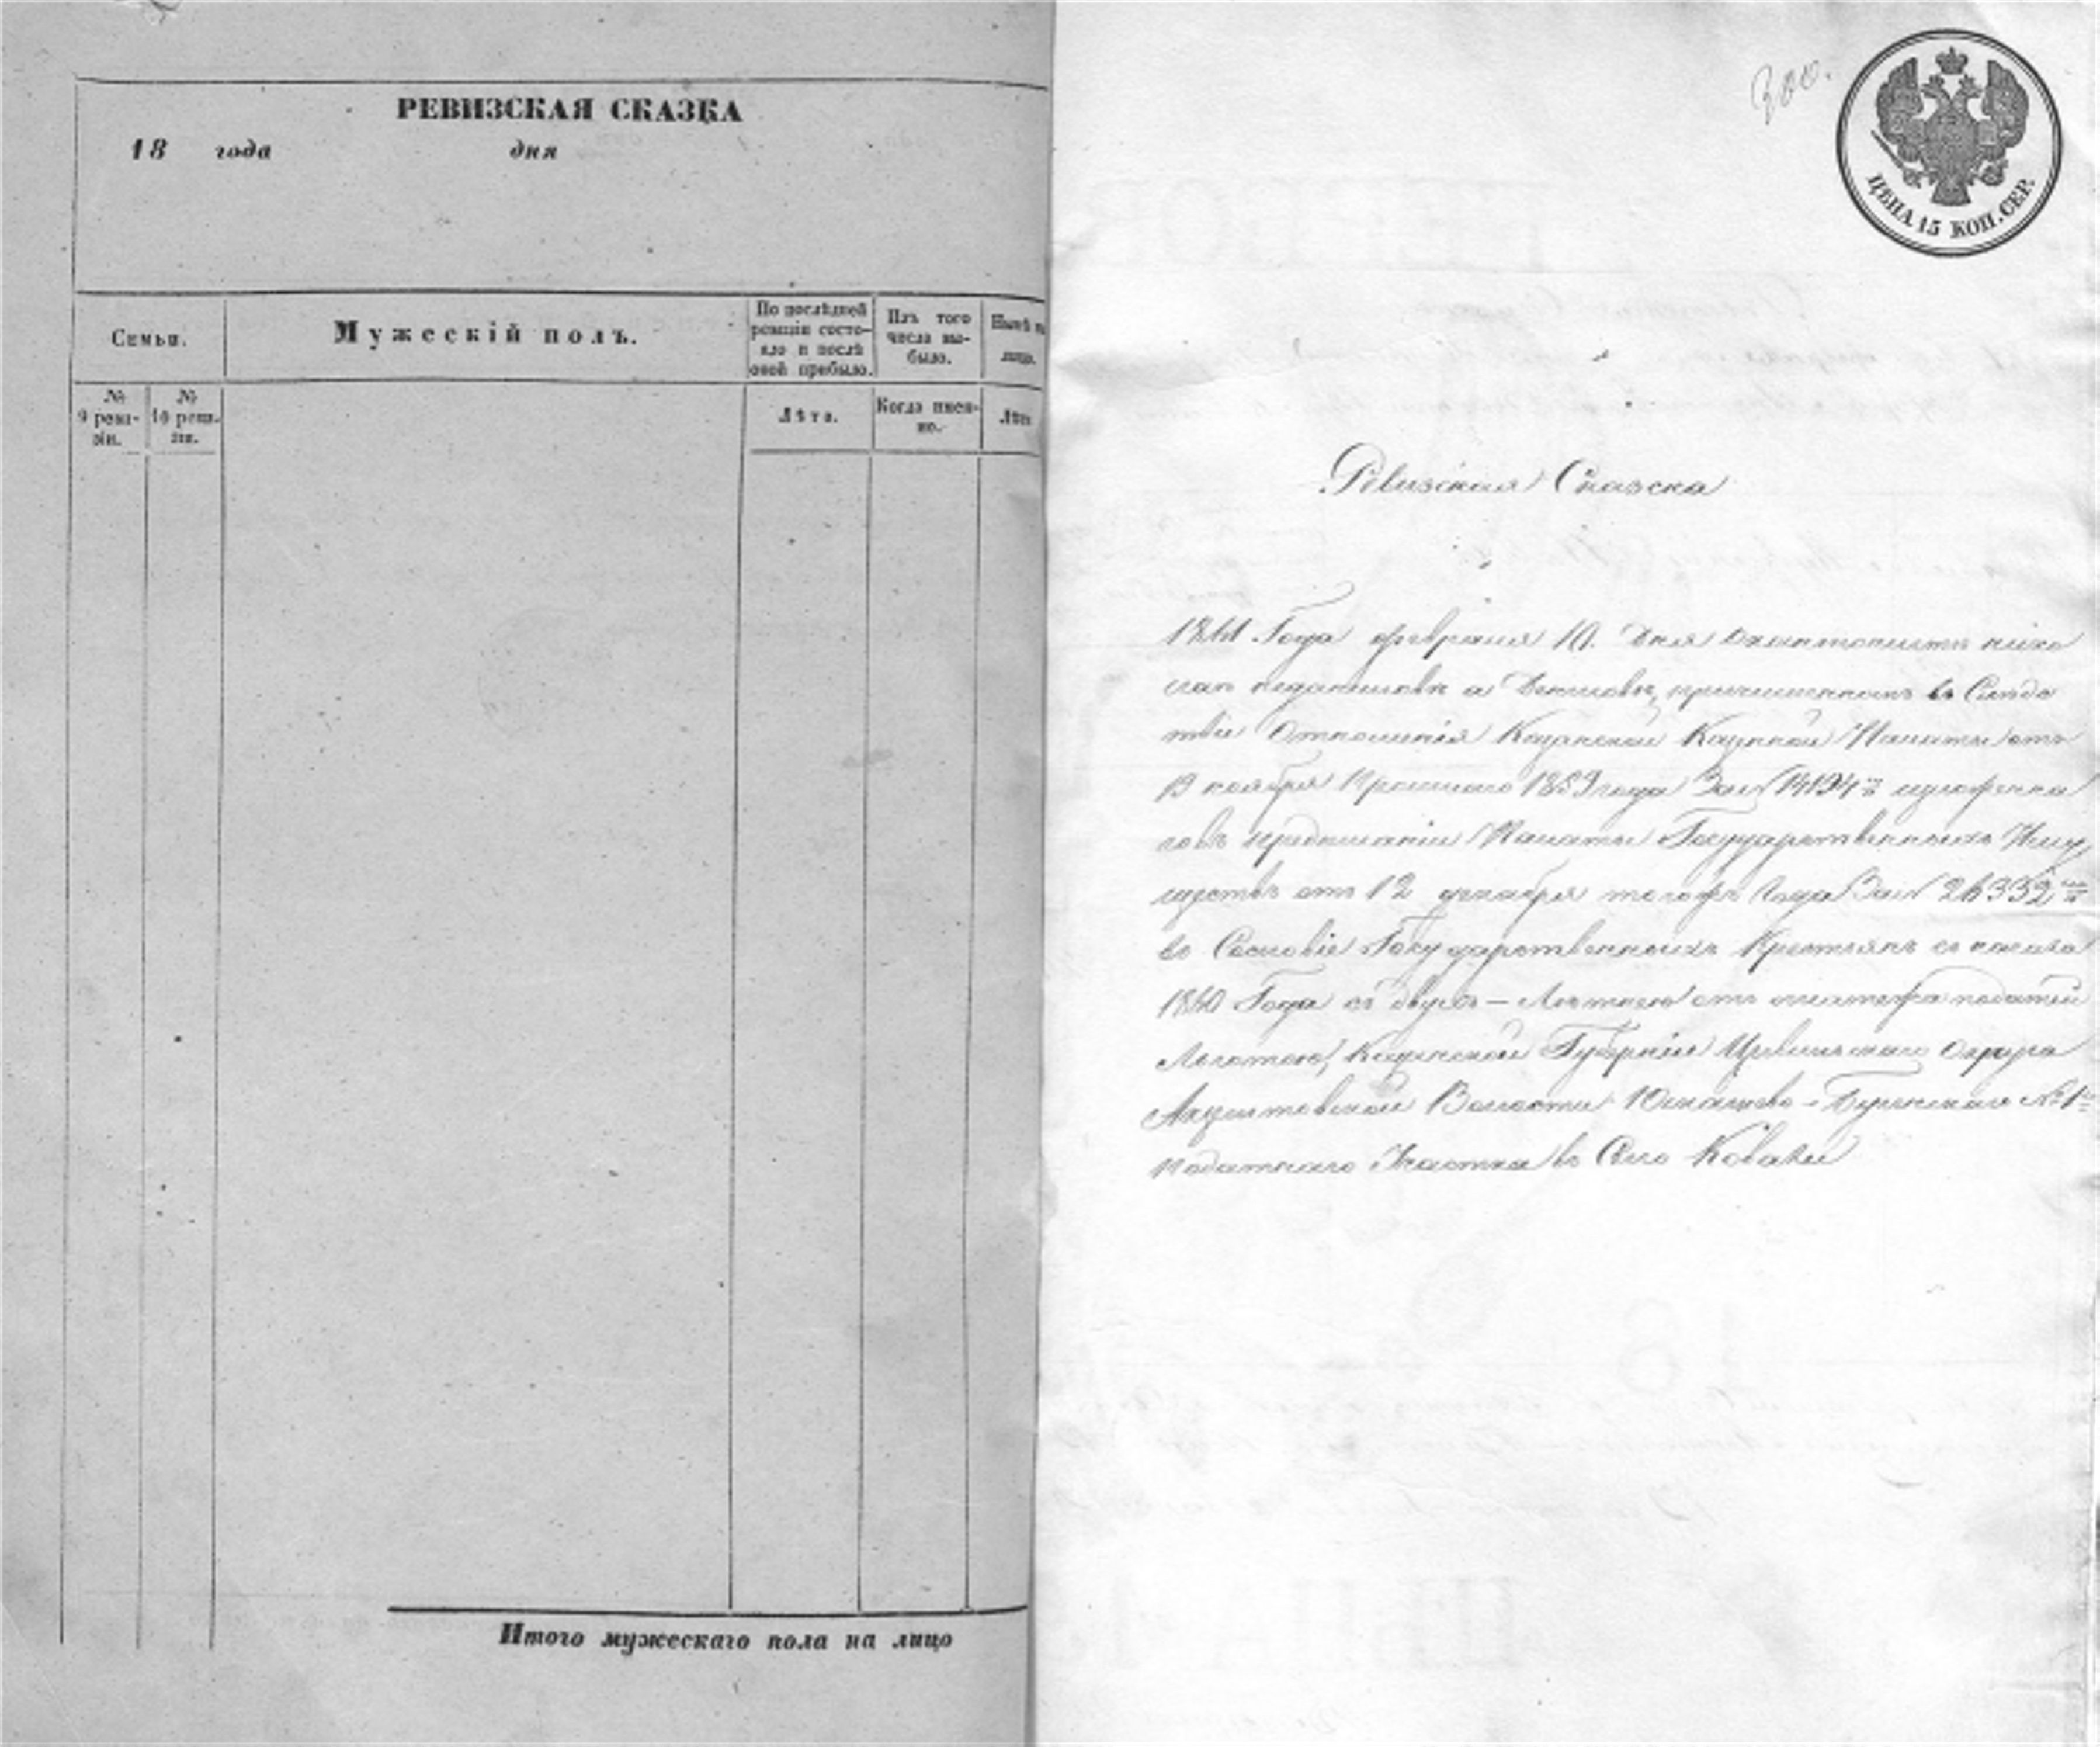 РЕВИЗСКАЯ СКАЗКА
18 года дня
Семьи.
Мужескій полъ.
По послѣдней
ревизіи состо-
яло и послѣ
оной прибыло.
Изъ того
числа вы-
было.
Нынѣ на
лицо.
№
9 реви-
зіи.
№
10 реви-
зіи.
Лѣта.
Когда имен-
но.
Лѣта
Итого мужескаго пола на лицо
300.
ЦѢНА 15 КОП. СЕР.
Ревизская Сказска
1861 Года февраля 10. дня
причисленномъ въ Слѣдс
твіе Отношенія Казанской Казенной Палаты отъ
19 ноября прошлаго 1859 года За №
предписаніи Палаты Государственныхъ Иму
ществъ отъ 12 декабря тогожъ Года За № 26332
въ Сословіе Государственныхъ Крестьянъ съ начала
1860 Года съ двухъ – Лѣтнею отъ платежа податей
Льготою, Казанской Губерніи Цивильскаго Округа
Волости №1
податнаго Участка въ Село Ковали